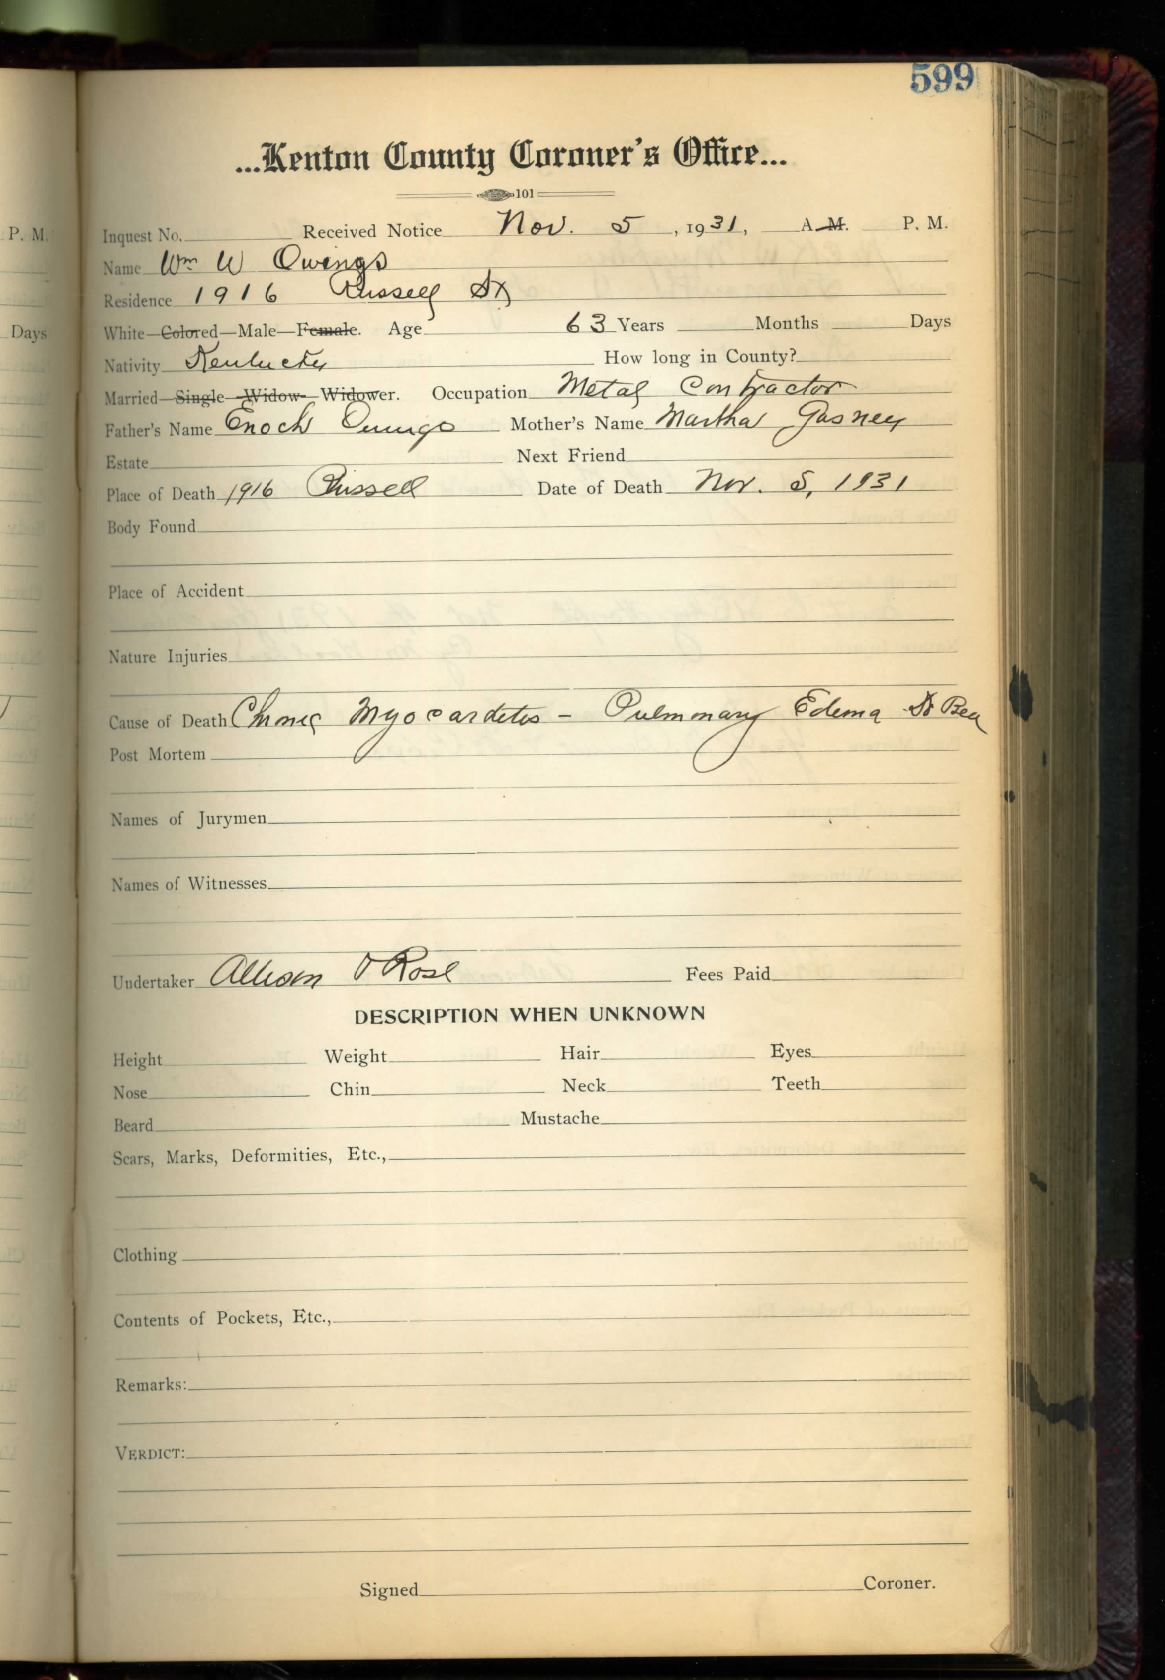 599
...Kenton County Coroner's Office...
101
P. M. Inquest No. Received Notice Nov. 5, 1931, A. M. P. M.
Name Wm W Owings
Residence 1916 Russell St
Days White—Colored—Male—Female. Age 63 Years Months Days
Nativity Kentucky How long in County?
Married—Single—Widow—Widower. Occupation Metal Contractor
Father's Name Enoch Owings Mother's Name Martha
Estate Next Friend
Place of Death 1916 Russell Date of Death Nov. 5, 1931
Body Found
Place of Accident
Nature Injuries
Cause of Death Chronic Myocardetis – Pulmonary Edema Dr
Post Mortem
Names of Jurymen
Names of Witnesses
Undertaker Allison & Rose Fees Paid
DESCRIPTION WHEN UNKNOWN
Height Weight Hair Eyes
Nose Chin Neck Teeth
Beard Mustache
Scars, Marks, Deformities, Etc.,
Clothing
Contents of Pockets, Etc.,
Remarks:
VERDICT:
Signed Coroner.